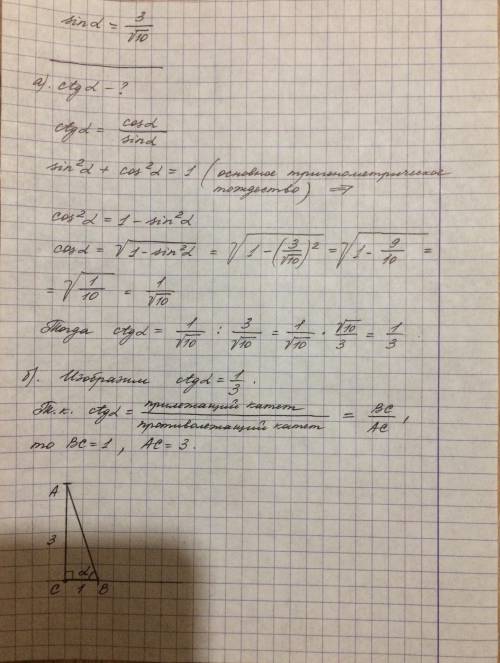 sinα = 3/√10
а). ctgα - ?
ctgα = cosα/sinα
sin²α + cos²α = 1 (основное тригонометрическое
тождество) ⇒
cos²α = 1 - sin²α
cosα = √(1 - sin²α) = √(1 - (3/√10)²) = √(1 - 9/10) =
= √(1/10) = 1/√10
Тогда ctgα = 1/√10 : 3/√10 = 1/√10 · √10/3 = 1/3.
б). Изобразим ctgα = 1/3.
Т.к. ctgα = прилежащий катет/противолежащий катет = BC/AC,
то BC = 1, AC = 3.
A
3
α
C 1 B